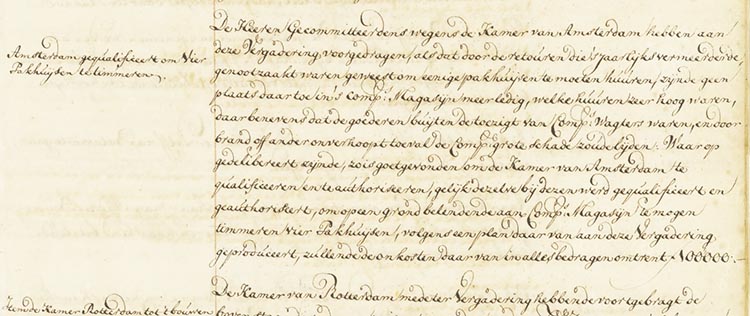 De Heeren Gecommitteerdens wegens de Kamer van Amsterdam hebben aan
Amsterdam gequalificeert om Vier
Pakhuijsen te timmeren
deze Vergadering, voorgedragen, als dat door de retouren die 's jaarlijks vermeerderde,
genootzaakt waren geweest om eenige pakhuijsen te moeten huuren, zijnde geen
plaats daar toe in 's Comp: Magasijn meer ledig, welke huuren zeer hoog waren,
daar benevens dat de goederen buijten de toezigt van Comp: Wagters waren, en door
brand off ander onverhoopt toeval de Comp: grote schade zoude lijden. Waar op
gedelibereert zijnde, zo is goetgevonden om de Kamer van Amsterdam te
qualificeeren en te authoriseeren, gelijk dezelve bij dezen werd gequalificeert en
geauthoriseert, om op een grond belendende aan Comp: Magasijn te mogen
timmeren Vier Pakhuijsen, volgens een plan daar van aan deze Vergadering,
geproduceert, zullende de onkosten daar van in alles bedragen omtrent ƒ 100000.-
De Kamer van Rotterdam mede ter Vergadering hebbende voortgebragt de
Item de Kamer Rotterdam tot 't bouwen